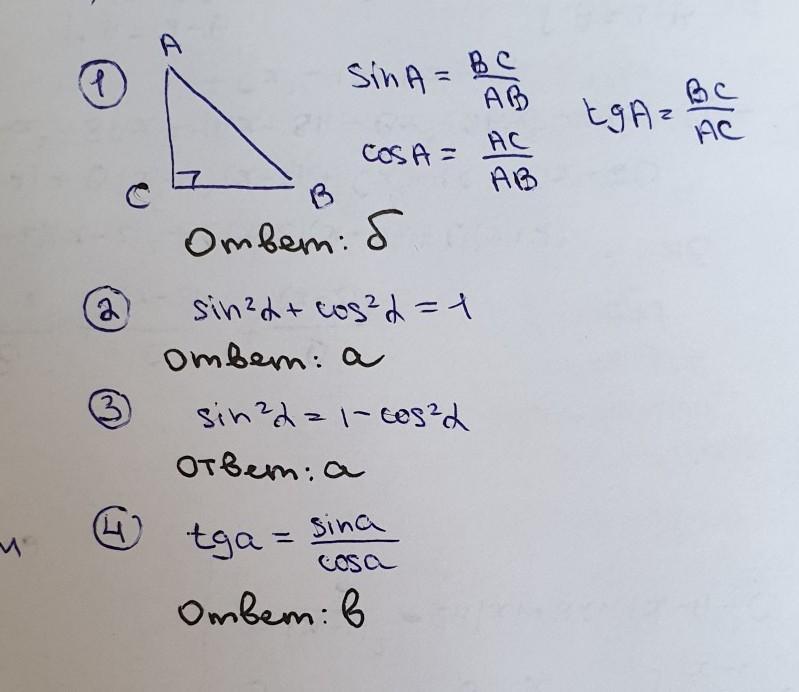 ① A
sin A = BC/AB
tg A = BC/AC
cos A = AC/AB
C B
Ответ: б
② sin²α + cos²α = 1
Ответ: а
③ sin²α = 1 - cos²α
Ответ: а
④ tg a = sin a/cos a
и
Ответ: в